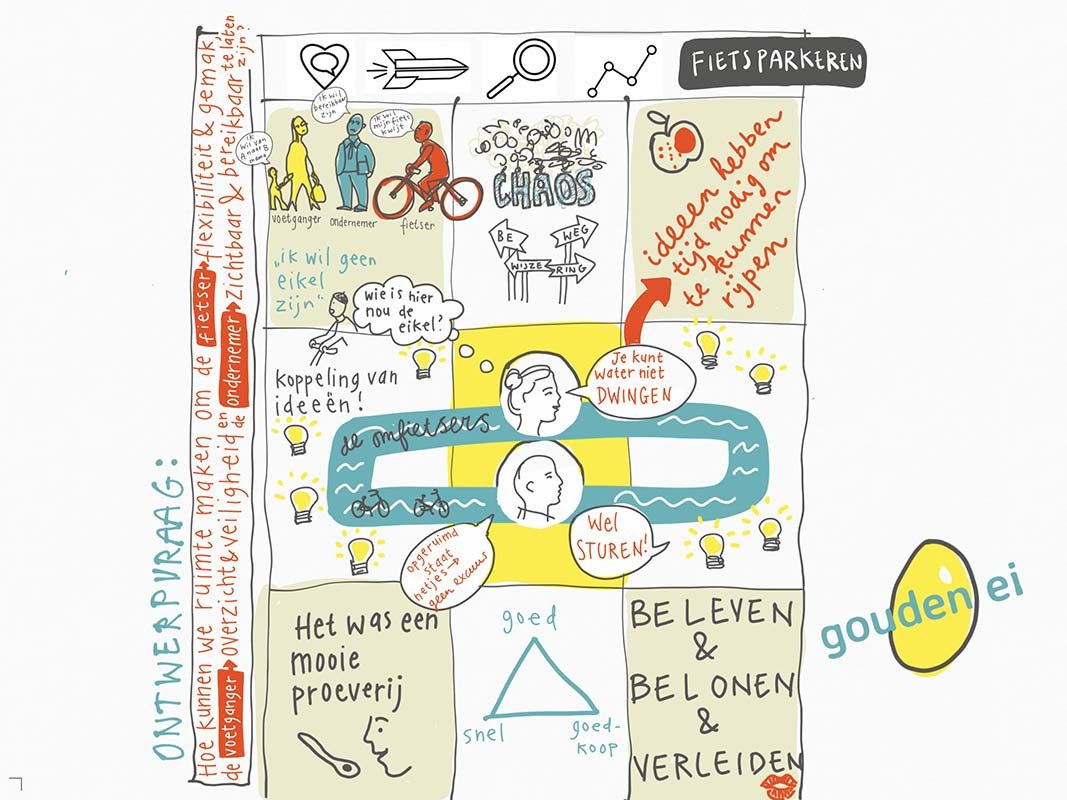 FIETSPARKEREN
ONTWERPVRAAG:
Hoe kunnen we ruimte maken om de fietser flexibiliteit & gemak
de voetganger overzicht & veiligheid en de ondernemer zichtbaar & bereikbaar te laten zijn?
ik wil van A naar B mama
ik wil bereikbaar zijn
ik wil mijn fiets kwijt
voetganger
ondernemer
fietser
„ik wil geen
eikel
zijn"
wie is hier
nou de
eikel?
CHAOS
BE
WEG
WIJZE
RING
ideeen hebben
tijd nodig om
te kunnen
rijpen
Koppeling van
ideeën!
Je kunt
water niet
DWINGEN
de omfietsers
opgeruimd
staat
netjes →
geen excuus
Wel
STUREN!
Het was een
mooie
proeverij
goed
snel
goed-
koop
BELEVEN
&
BELONEN
&
VERLEIDEN
gouden ei